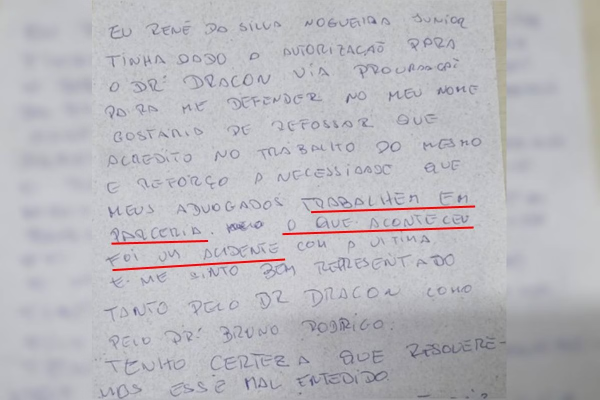 EU RENÉ DA SILVA NOGUEIRA JUNIOR
TINHA DADO A AUTORIZAÇÃO PARA
O DR: DRACON VIA PROCURAÇÃO
PARA ME DEFENDER NO MEU NOME
GOSTARIA DE REFOSSAR QUE
ACREDITO NO TRABALHO DO MESMO
E REFORÇO A NECESSIDADE QUE
MEUS ADVOGADOS TRABALHEM EM
PARCERIA. O QUE ACONTECEU
FOI UM ACIDENTE COM A VITIMA
E ME SINTO BEM REPRESENTADO
TANTO PELO DR DRACON COMO
PELO DR: BRUNO RODRIGO.
TENHO CERTEZA QUE RESOLVERE-
MOS ESSE MAL ENTEDIDO